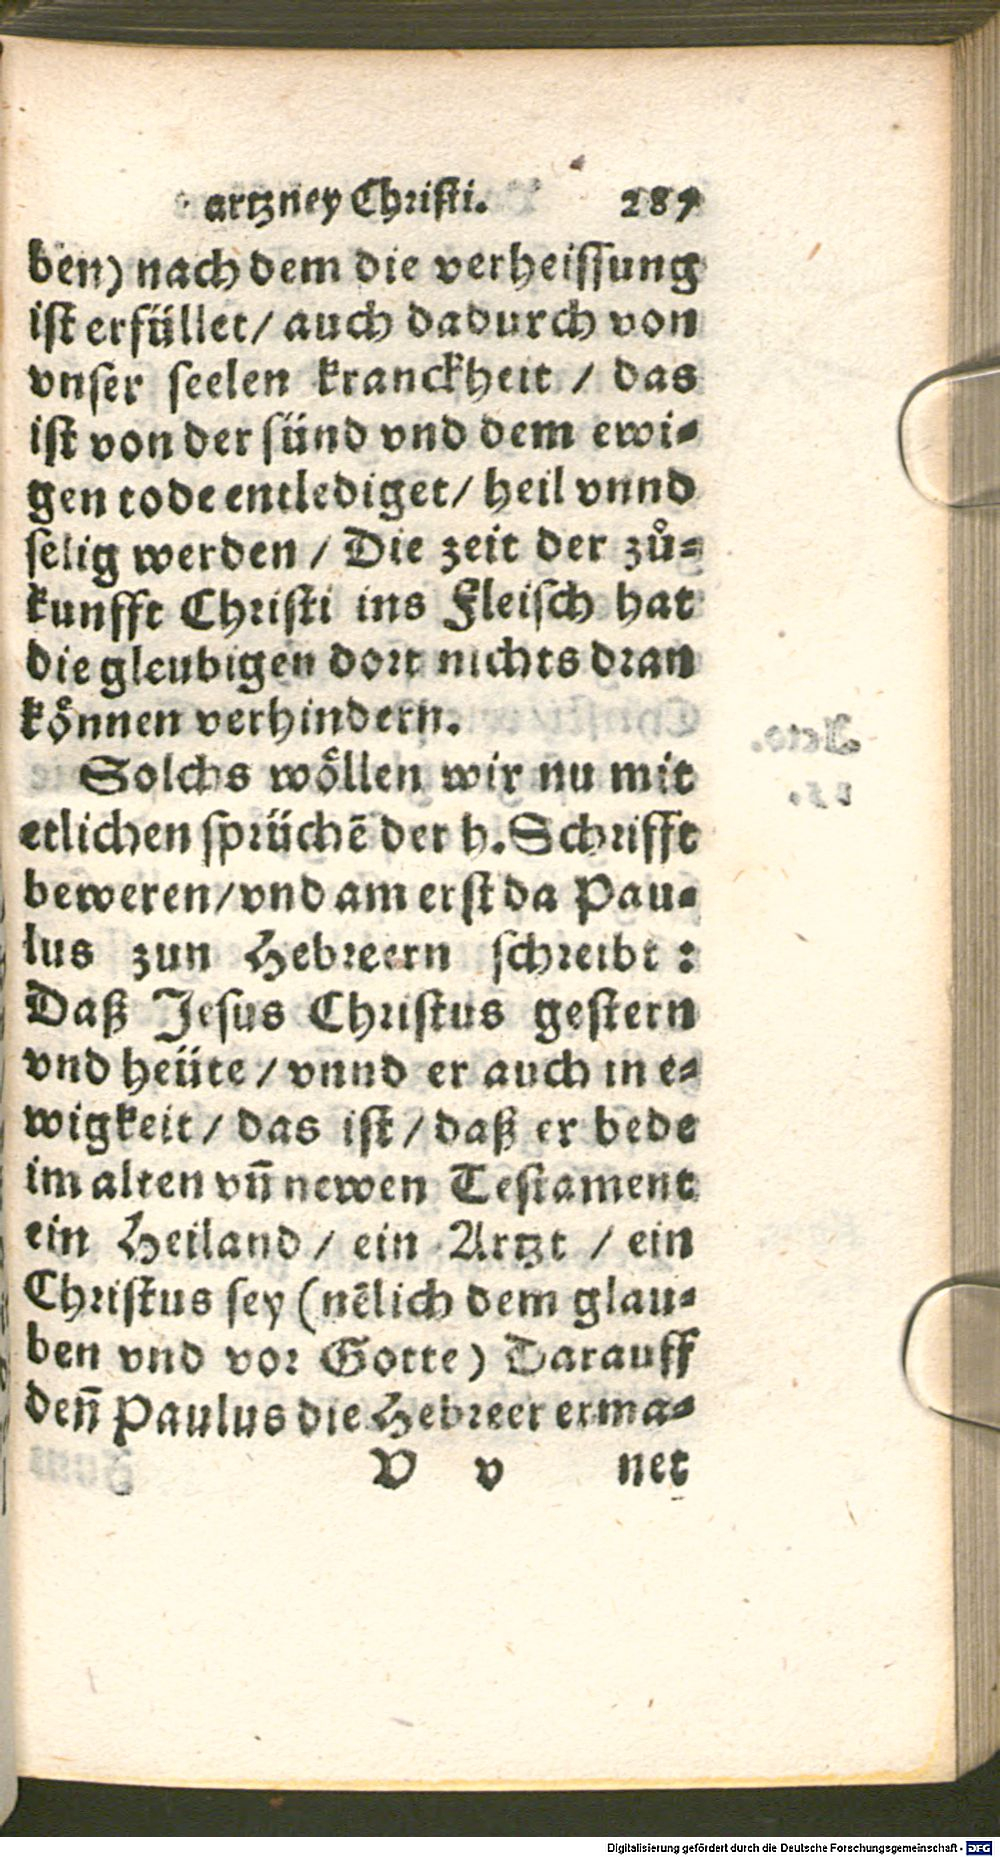 artzney Christi. 287
ben) nach dem die verheissung
ist erfüllet/ auch dadurch von
vnser seelen kranckheit / das
ist von der sünd vnd dem ewi⸗
gen tode entlediget/ heil vnnd
selig werden / Die zeit der zů⸗
kunfft Christi ins Fleisch hat
die gleubigen dort nichts dran
können verhindern.
Solchs wöllen wir nu mit
etlichen sprüchē der h. Schrifft
beweren/ vnd am erst da Pau⸗
lus zun Hebreern schreibt :
Daß Jesus Christus gestern
vnd heüte / vnnd er auch in e⸗
wigkeit / das ist / daß er bede
im alten vn̄ newen Testament
ein Heiland / ein Artzt / ein
Christus sey (nēlich dem glau⸗
ben vnd vor Gotte) Darauff
den̄ Paulus die Hebreer erma⸗
V v net
Digitalisierung gefördert durch die Deutsche Forschungsgemeinschaft - DFG